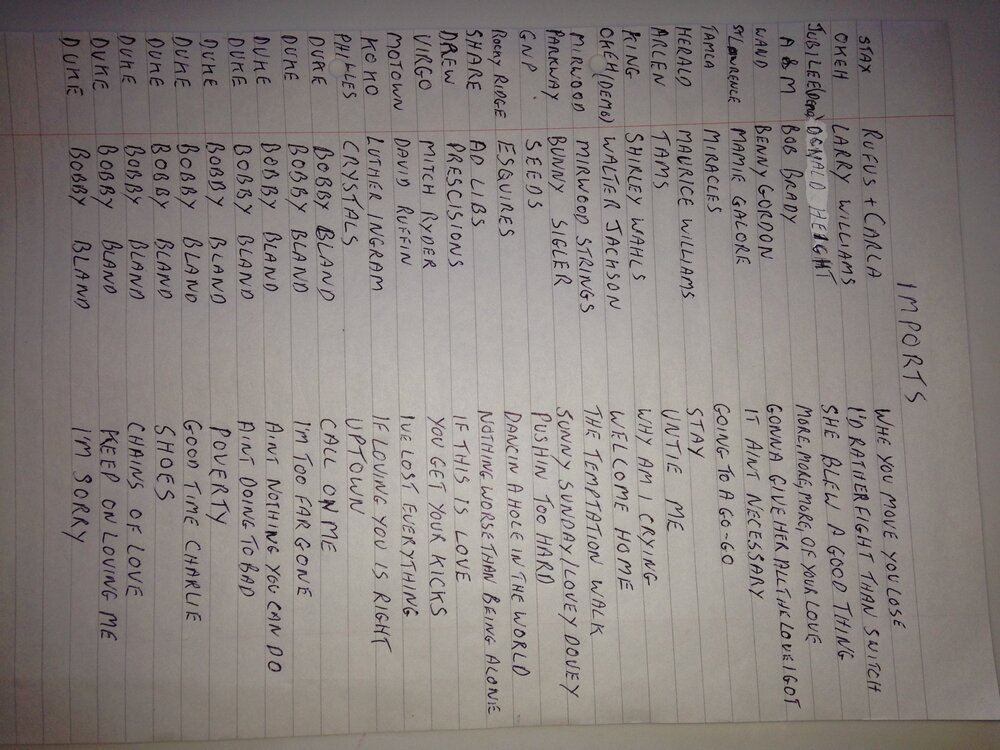 IMPORTS
STAX RUFUS + CARLA WHE YOU MOVE YOU LOSE
OKEH LARRY WILLIAMS I'D RATHER FIGHT THAN SWITCH
JUBILEE(Demo) DONALD HEIGHT SHE BLEW A GOOD THING
A & M BOB BRADY MORE, MORE, MORE, OF YOUR LOVE
WAND BENNY GORDON GONNA GIVE HER ALL THE LOVE I GOT
ST LAWRENCE MAMIE GALORE IT AINT NECESSARY
TAMLA MIRACLES GOING TO A GO-GO
HERALD MAURICE WILLIAMS STAY
ARLEN TAMS UNTIE ME
KING SHIRLEY WAHLS WHY AM I CRYING
OKEH (DEMO) WALTER JACKSON WELCOME HOME
MIRWOOD MIRWOOD STRINGS THE TEMPTATION WALK
PARKWAY BUNNY SIGLER SUNNY SUNDAY/LOVEY DOVEY
GNP. SEEDS PUSHIN TOO HARD
ROCKY RIDGE ESQUIRES DANCIN A HOLE IN THE WORLD
SHARE AD LIBS NOTHING WORSE THAN BEING ALONE
DREW PRESCISIONS IF THIS IS LOVE
VIRGO MITCH RYDER YOU GET YOUR KICKS
MOTOWN DAVID RUFFIN I'VE LOST EVERYTHING
KOKO LUTHER INGRAM IF LOVING YOU IS RIGHT
PHILLES CRYSTALS UPTOWN
DUKE BOBBY BLAND CALL ON ME
DUKE BOBBY BLAND IM TOO FAR GONE
DUKE BOBBY BLAND AINT NOTHING YOU CAN DO
DUKE BOBBY BLAND AINT DOING TO BAD
DUKE BOBBY BLAND POVERTY
DUKE BOBBY BLAND GOOD TIME CHARLIE
DUKE BOBBY BLAND SHOES
DUKE BOBBY BLAND CHAINS OF LOVE
DUKE BOBBY BLAND KEEP ON LOVING ME
DUKE BOBBY BLAND I'M SORRY